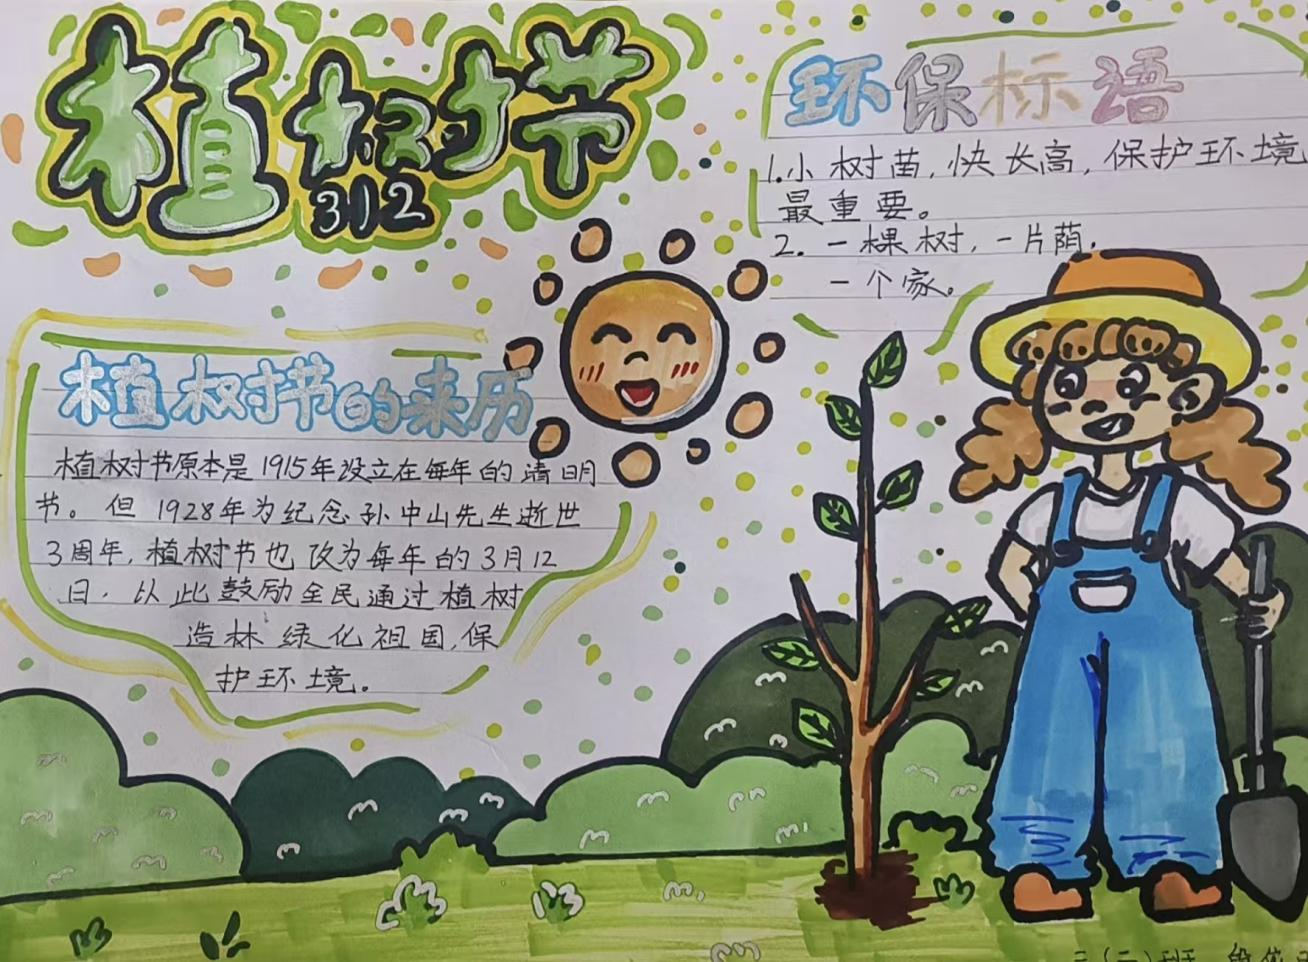 植树节
312
环保标语
1.小树苗,快长高,保护环境
最重要。
2. 一棵树,一片荫,
一个家。
植树节的来历
植树节原本是1915年设立在每年的清明
节。但1928年为纪念孙中山先生逝世
3周年,植树节也改为每年的3月12
日,从此鼓励全民通过植树
造林绿化祖国,保
护环境。